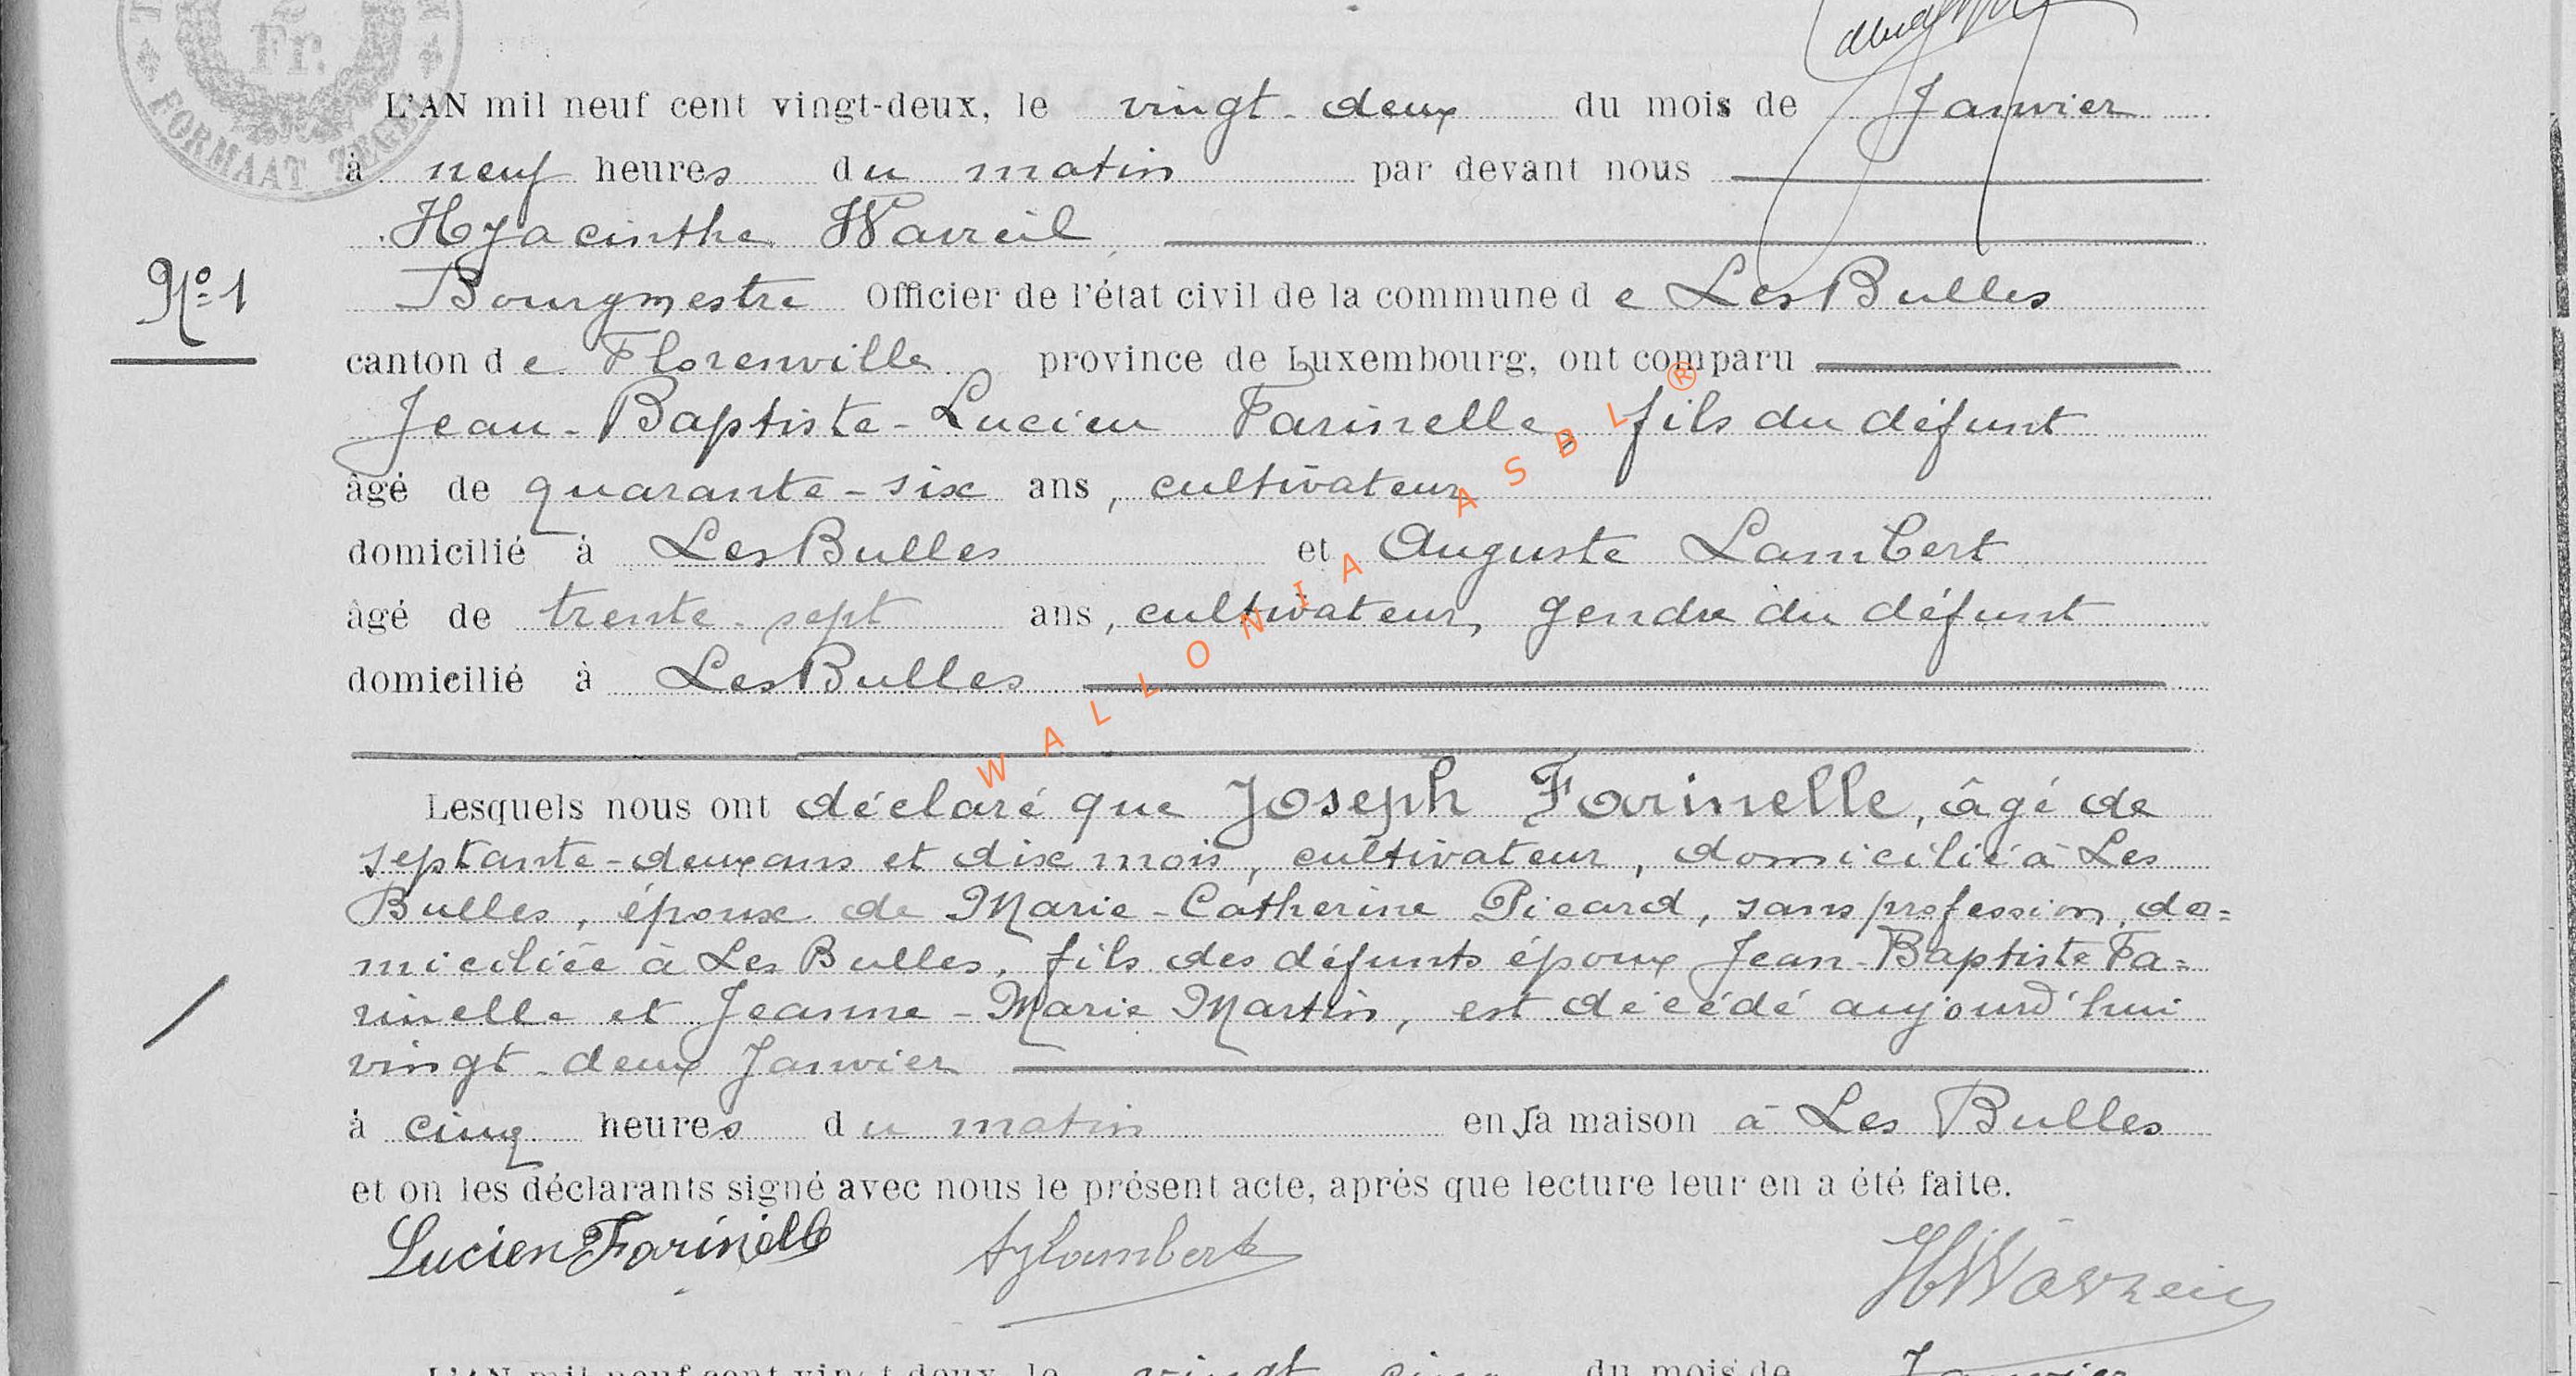 2
Fr.
FORMAAT ZEGEL
L'AN mil neuf cent vingt-deux, le vingt-deux du mois de Janvier
à neuf heures du matin par devant nous
Hyacinthe Wavreil,
Nº 1
Bourgmestre Officier de l'état civil de la commune de Les Bulles
canton de Florenville province de Luxembourg, ont comparu
Jean-Baptiste-Lucien Farinelle, fils du défunt
âgé de quarante-six ans, cultivateur
domicilié à Les Bulles et Auguste Lambert
âgé de trente-sept ans, cultivateur, gendre du défunt
domicilié à Les Bulles
WALLONIA ASBL ®
Lesquels nous ont déclaré que Joseph Farinelle, âgé de
septante-deux ans et dix mois, cultivateur, domicilié à Les
Bulles, époux de Marie-Catherine Picard, sans profession, do=
miciliée à Les Bulles, fils des défunts époux Jean-Baptiste Fa=
rinelle et Jeanne-Marie Martin, est décédé aujourd'hui
vingt-deux Janvier
à cinq heures du matin en sa maison à Les Bulles
et on les déclarants signé avec nous le présent acte, après que lecture leur en a été faite.
Lucien Farinelle Ag Lambert H Wavreil
L'AN mil neuf cent vingt-deux, le vingt cinq du mois de Janvier